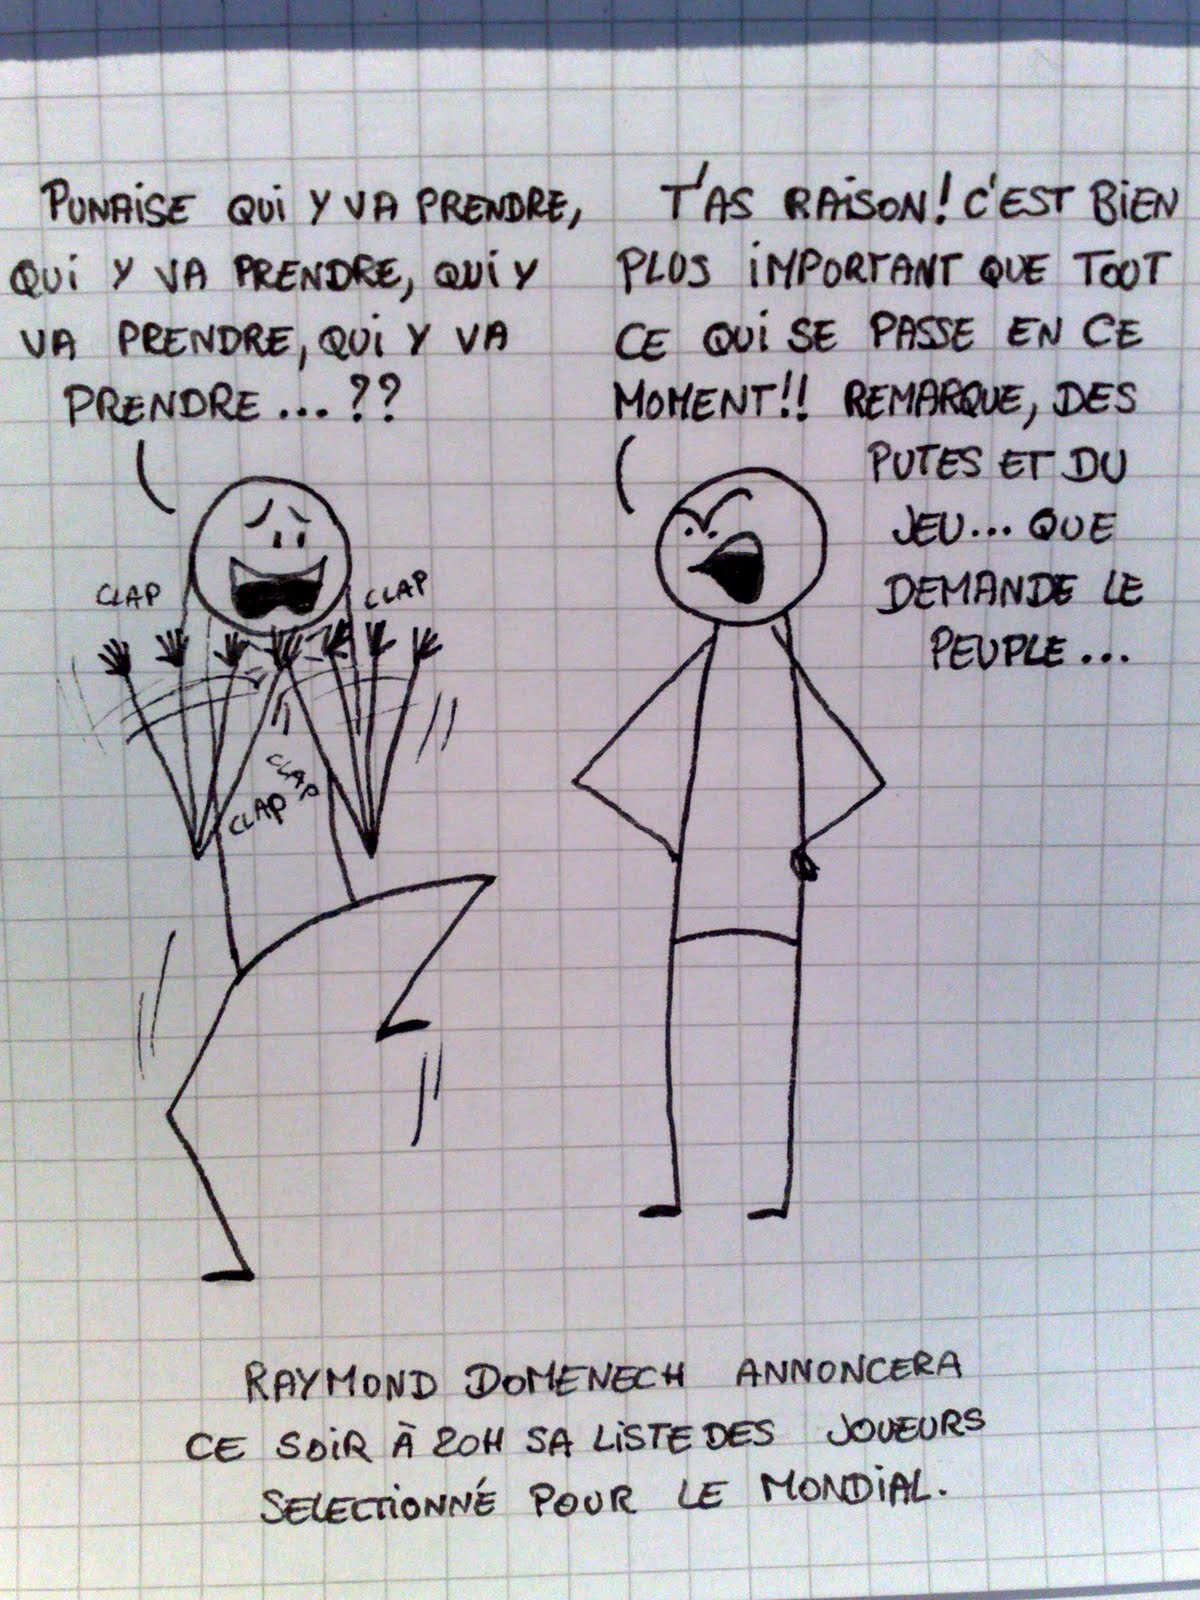 PUNAISE QUI Y VA PRENDRE,
QUI Y VA PRENDRE, QUI Y
VA PRENDRE, QUI Y VA
PRENDRE...??
T'AS RAISON! C'EST BIEN
PLUS IMPORTANT QUE TOUT
CE QUI SE PASSE EN CE
MOMENT!! REMARQUE, DES
PUTES ET DU
JEU... QUE
DEMANDE LE
PEUPLE...
CLAP
CLAP
CLAP
CLAP
RAYMOND DOMENECH ANNONCERA
CE SOIR À 20H SA LISTE DES JOUEURS
SELECTIONNÉ POUR LE MONDIAL.